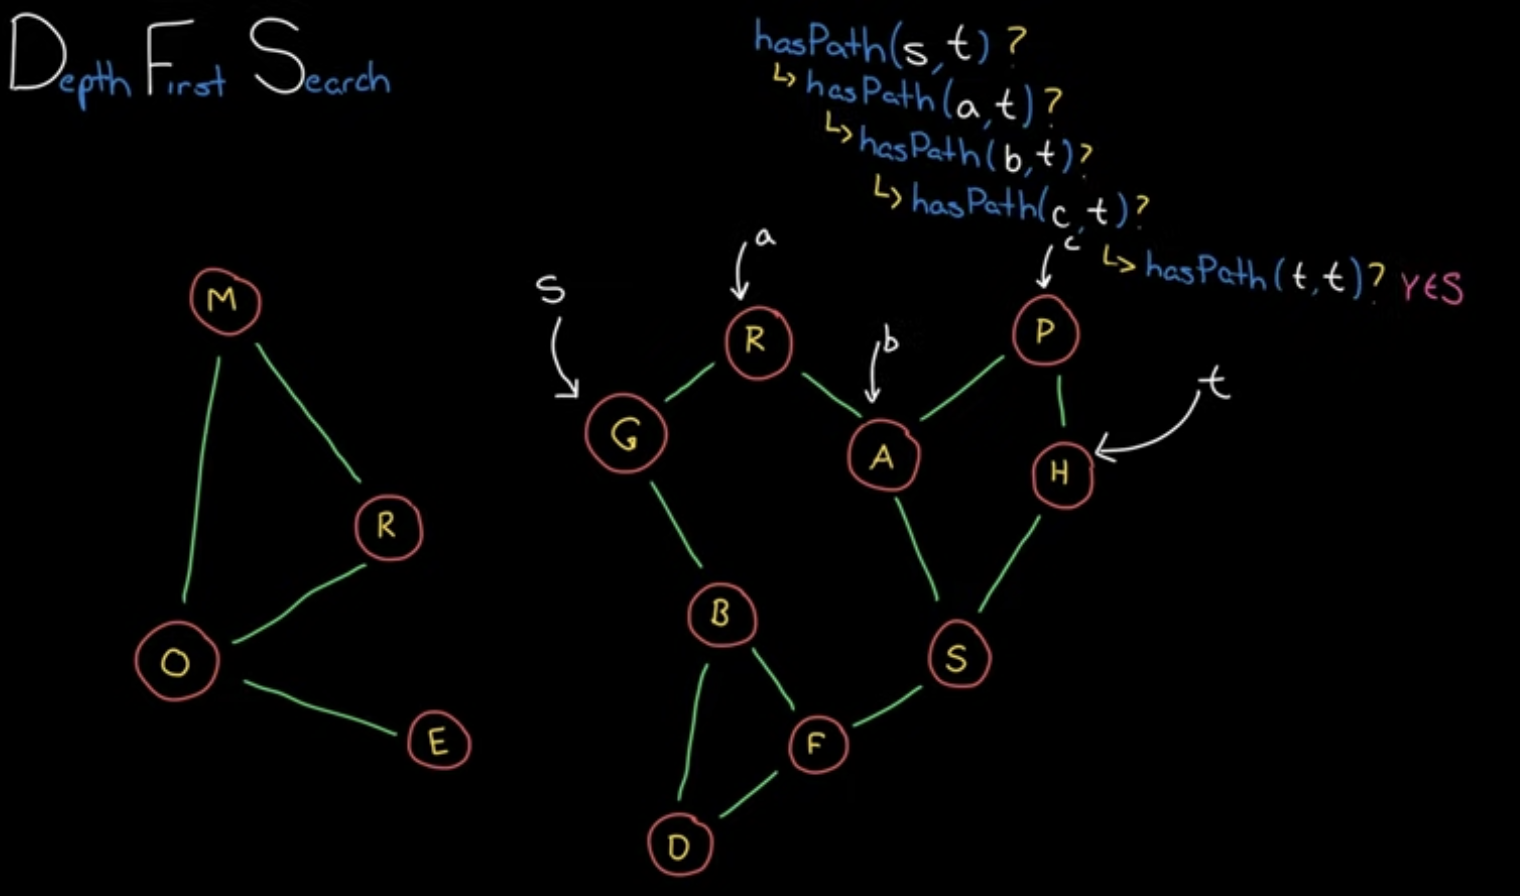 Depth First Search
hasPath(s,t)?
↳ hasPath(a,t)?
↳ hasPath(b,t)?
↳ hasPath(c,t)?
↳ hasPath(t,t)? YES
a
c
s
b
t
M
R
P
G
A
H
R
B
S
O
E
F
D